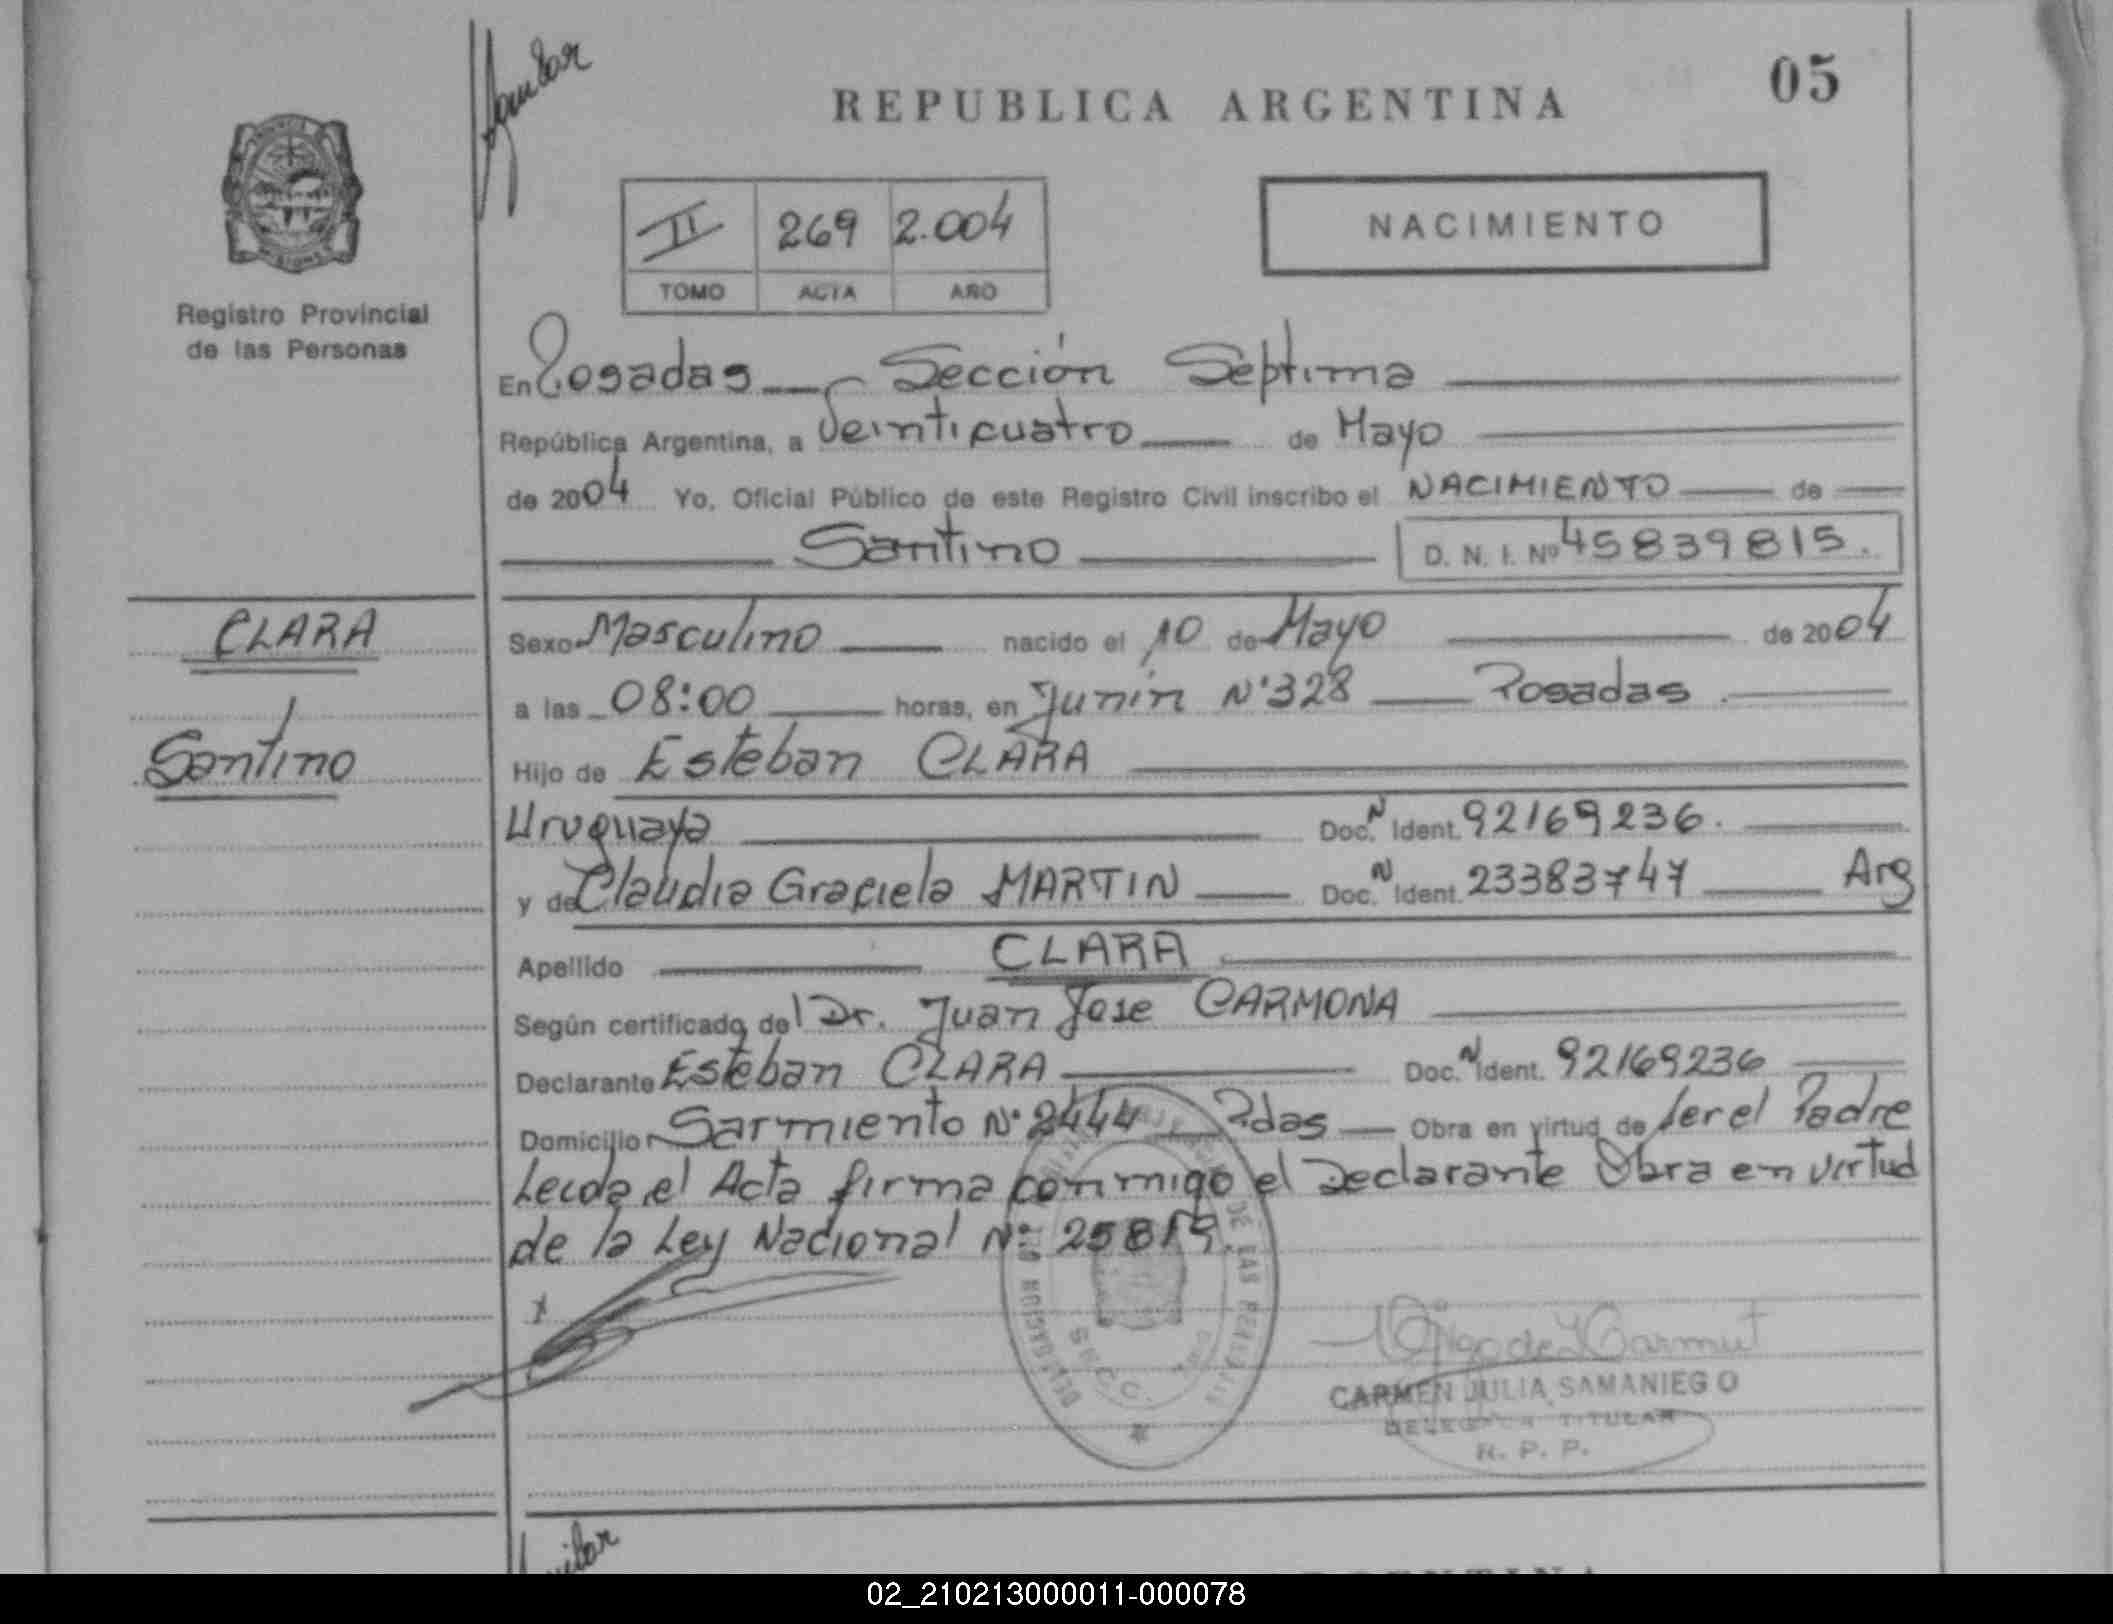 Aguilar
REPUBLICA ARGENTINA
05
II 269 2.004
TOMO ACTA AÑO
NACIMIENTO
Registro Provincial
de las Personas
En Posadas Sección Septima
República Argentina, a Veinticuatro de Mayo
de 2004 Yo, Oficial Público de este Registro Civil inscribo el NACIMIENTO de
Santino D. N. I. Nº 45839815.
CLARA
Santino
Sexo Masculino nacido el 10 de Mayo de 2004
a las 08:00 horas, en Junín Nº 328 Posadas.
Hijo de Esteban CLARA
Uruguaya Doc. N Ident. 92169236.
y de Claudia Graciela MARTIN Doc. N Ident. 23383747 Arg
Apellido CLARA
Según certificado del Dr. Juan Jose CARMONA
Declarante Esteban CLARA Doc. N Ident. 92169236
Domicilio Sarmiento Nº 2444 Pdas Obra en virtud de ser el Padre
Leida el Acta firma conmigo el Declarante Obra en virtud
de la Ley Nacional Nº 25819.
x
DE LAS PERSONAS
CARMEN JULIA SAMANIEGO
DELEGADA TITULAR
R. P. P.
02_210213000011-000078